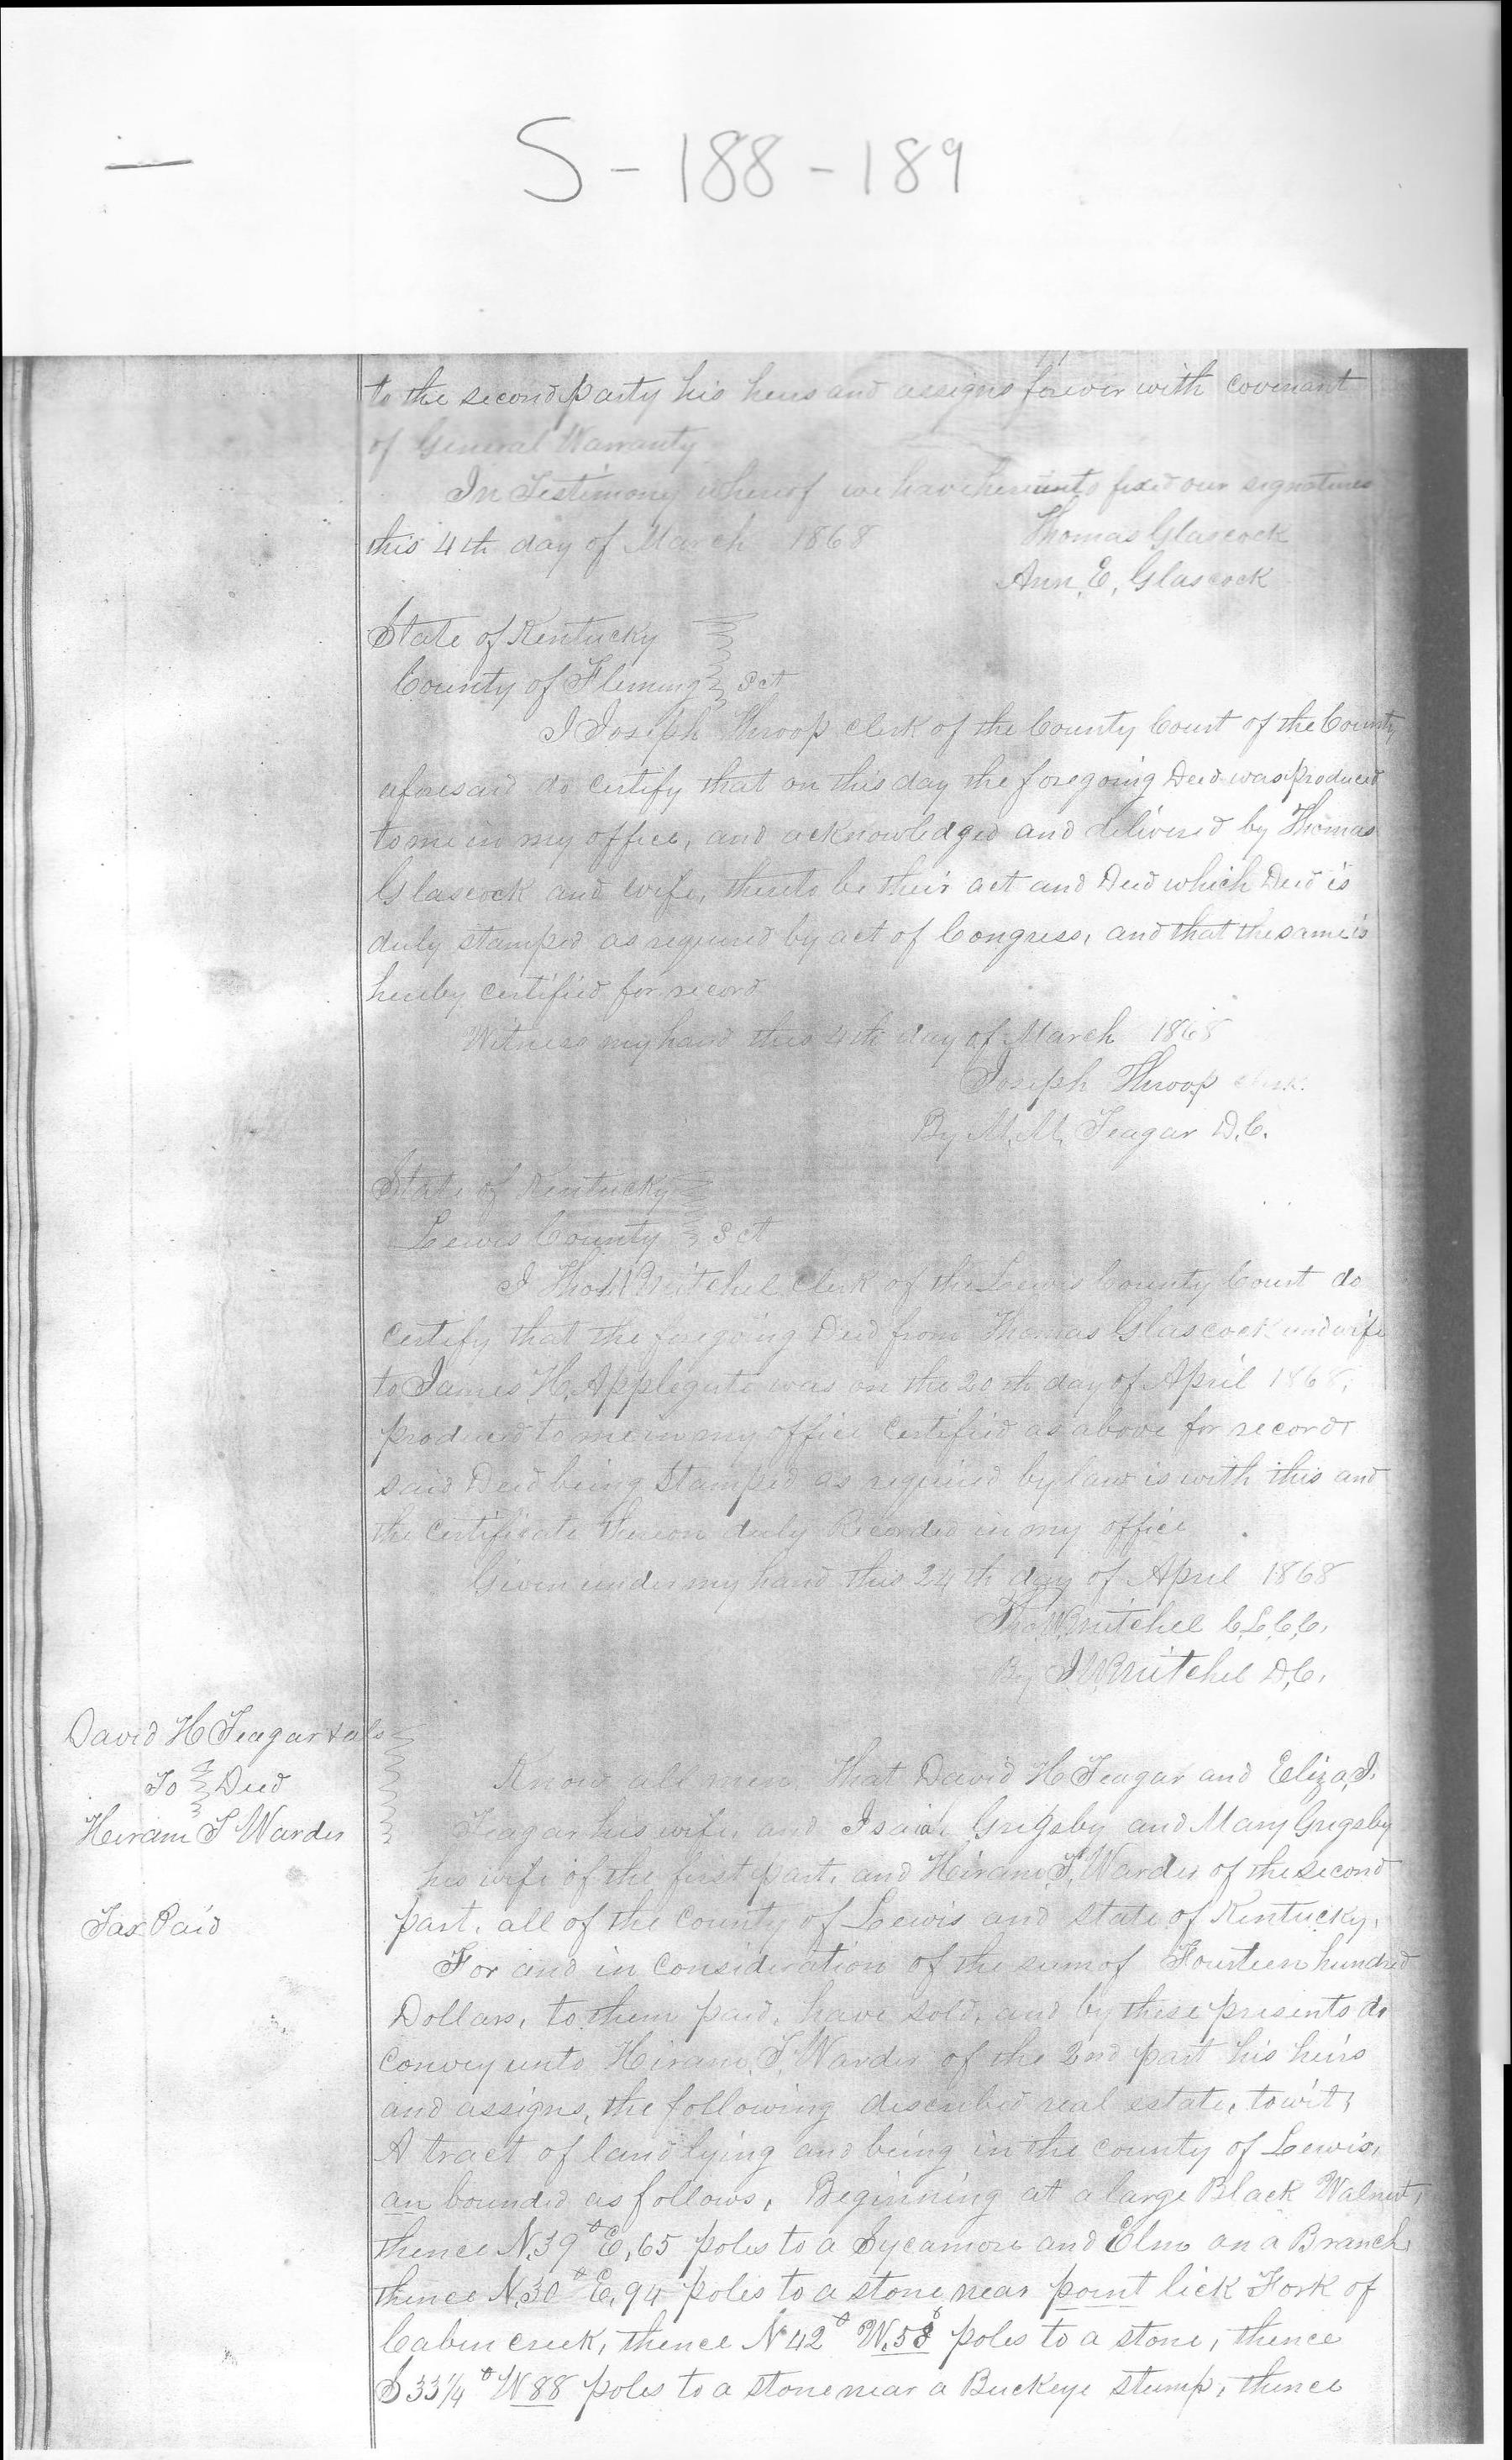 S - 188 - 189
to the second party his heirs and assigns forever with covenant
of General Warranty
In Testimony whereof we have hereunto fixed our signatures
this 4th day of March 1868
Thomas Glascock
Ann, E, Glascock
State of Kentucky
County of Fleming Sct
I Joseph Throop clerk of the County Court of the County
aforesaid do certify that on this day the foregoing Deed was produced
to me in my office, and acknowledged and delivered by Thomas
Glascock and wife, thereto be their act and Deed which Deed is
duly stamped as required by act of Congress, and that the same is
hereby certified for record
Witness my hand this 4th day of March 1868
Joseph Throop clerk.
By M. M, Teagar D.C.
State of Kentucky
Lewis County Sct
I Tho W Mitchel Clerk of the Lewis County Court do
certify that the foregoing Deed from Thomas Glascock and wife
to James H, Applegate was on the 20th day of April 1868,
produced to me in my office certified as above for record
said Deed being stamped as required by law is with this and
the certificate thereon duly Recorded in my office
Given under my hand this 24th day of April 1868
Tho W Mitchel C,L,C,C,
By J W Mitchel D,C,
David H Teagar & als
To Deed
Heiram T Warder
Tax Paid
Know all men, That David H Teagar and Eliza, J.
Teagar his wife, and Isaiah Grigsby and Mary Grigsby
his wife of the first part, and Heiram, T, Warder of the second
part, all of the county of Lewis and state of Kentucky,
For and in consideration of the sum of Fourteen hundred
Dollars, to them paid, have sold, and by these presents do
convey unto Heiram, T, Warder of the 2nd part his heirs
and assigns, the following described real estate, to wit;
A tract of land lying and being in the county of Lewis,
an bounded as follows, Beginning at a large Black Walnut,
thence N,39° E,65 poles to a Sycamore and Elm on a Branch,
thence N,30° E,94 poles to a stone near point lick Fork of
Cabin creek, thence N 42° W,58 poles to a stone, thence
S 33 1/4° W 88 poles to a stone near a Buckeye stump, thence